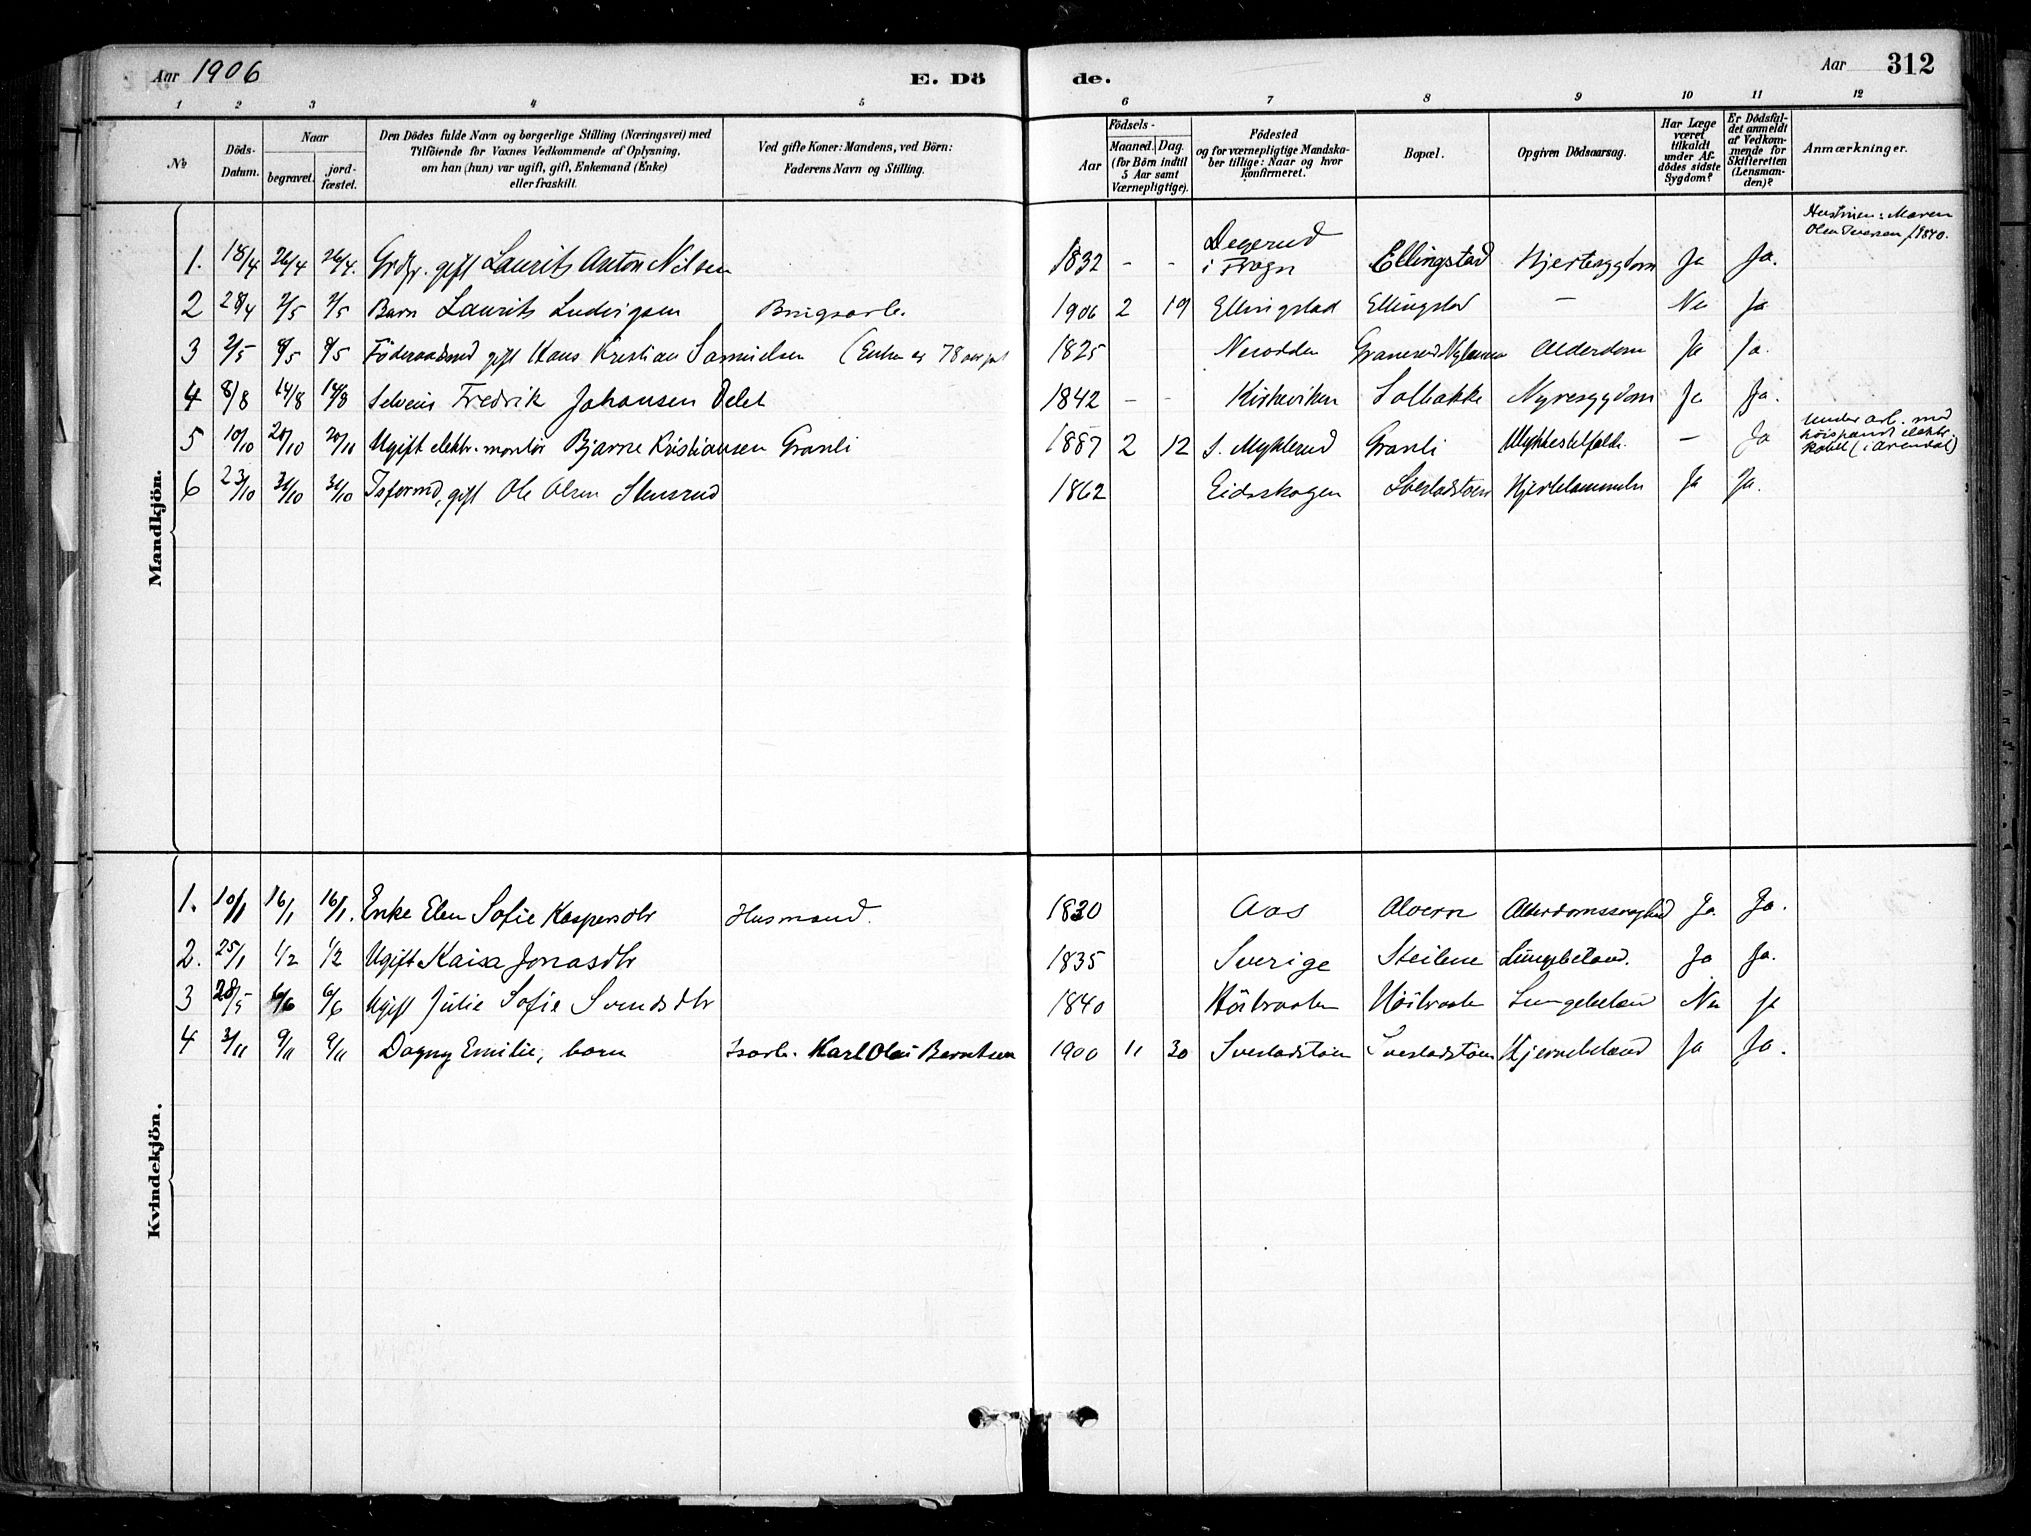 Aar 1906 E. Dö de. Aar 312
1 2 3 4 5 6 7 8 9 10 11 12
No
Döds-Datum.
Naar
begravet.
jord-fæstet.
Den Dödes fulde Navn og borgerlige Stilling (Næringsvei) med
Tilföiende for Voxnes Vedkommende af Oplysning,
om han (hun) var ugift, gift, Enkemand (Enke)
eller fraskilt.
Ved gifte Koner: Mandens, ved Börn:
Faderens Navn og Stilling.
Födsels-
Aar
Maaned. Dag.
(for Börn indtil
5 Aar samt
Værnepligtige).
Födested
og for værnepligtige Mandska-
ber tillige: Naar og hvor
Konfirmeret.
Bopæl.
Opgiven Dödsaarsag.
Har Læge
været
tilkaldt
under Af-
dödes sidste
Sygdom?
Er Dödsfal-
det anmeldt
af Vedkom-
mende for
Skifteretten
(Lensman-
den)?
Anmærkninger.
Mandkjön.
1. 18/4 26/4 26/4. Grdbr. gift Laurits Anton Nilsen 1832 - - Degerud i Frogn Ellingstad Hjertesygdom Ja Ja. Hustruen: Maren Olea Iversen f 1840.
2 28/4 2/5 2/5 Barn Laurits Ludvigsen Brugsarb. 1906 2 19 Ellingstad Ellingstad - Nei Ja
3 2/5 8/5 8/5 Föderaadsmd gift Hans Kristian Samuelsen (Enken er 78 aar gl. 1825 Nesodden Granerud Alderdom Ja Ja.
4 8/8 14/8 14/8 Selveier Fredrik Johansen Delet 1842 - - Kirkeviken Solbakke Nyresygdom Ja Ja.
5 10/10 20/10 20/11 Ugift elektr. montör Bjarne Kristiansen Granli 1887 2 12 S. Myklerud Granli Ulykkestilfælde. - Ja under arb. med höispændt elektr. kabel (i Arendal)
6 23/10 31/10 31/10 Isformd, gift Ole Olsen Stensrud 1862 Eidsskogen Svestadstöen Hjertelammelse Ja Ja.
Kvindekjön.
1. 10/1 16/1 16/1. Enke Elen Sofie Kaspersdtr Husmand. 1830 Aas Alvern Alderdomssvaghed Ja Ja.
2. 25/1 1/2 1/2 Ugift Kaisa Jonasdtr 1835 Sverige Steilene Lungebetænd. Ja Ja.
3 28/5 6/6 6/6 Ugift Julie Sofie Svendsdtr 1840 Höibraaten Höibraaten Lungebetæn Nei ja
4 3/11 9/11 9/11 Dagny Emilie, barn Isarb. Karl Olai Berntsen 1900 11 30 Svestadstöen Svestadstöen Hjernebetænd Ja Ja.